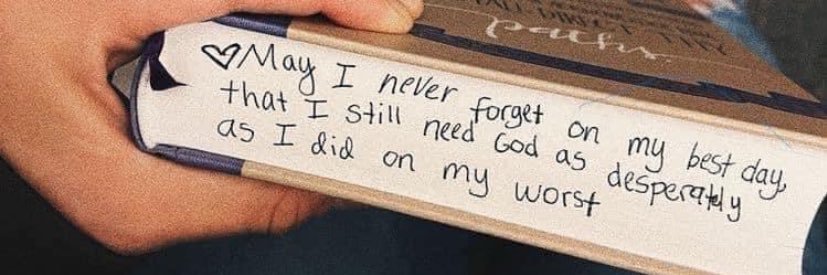 paths.
♡May I never forget on my best day,
that I still need God as desperately
as I did on my worst